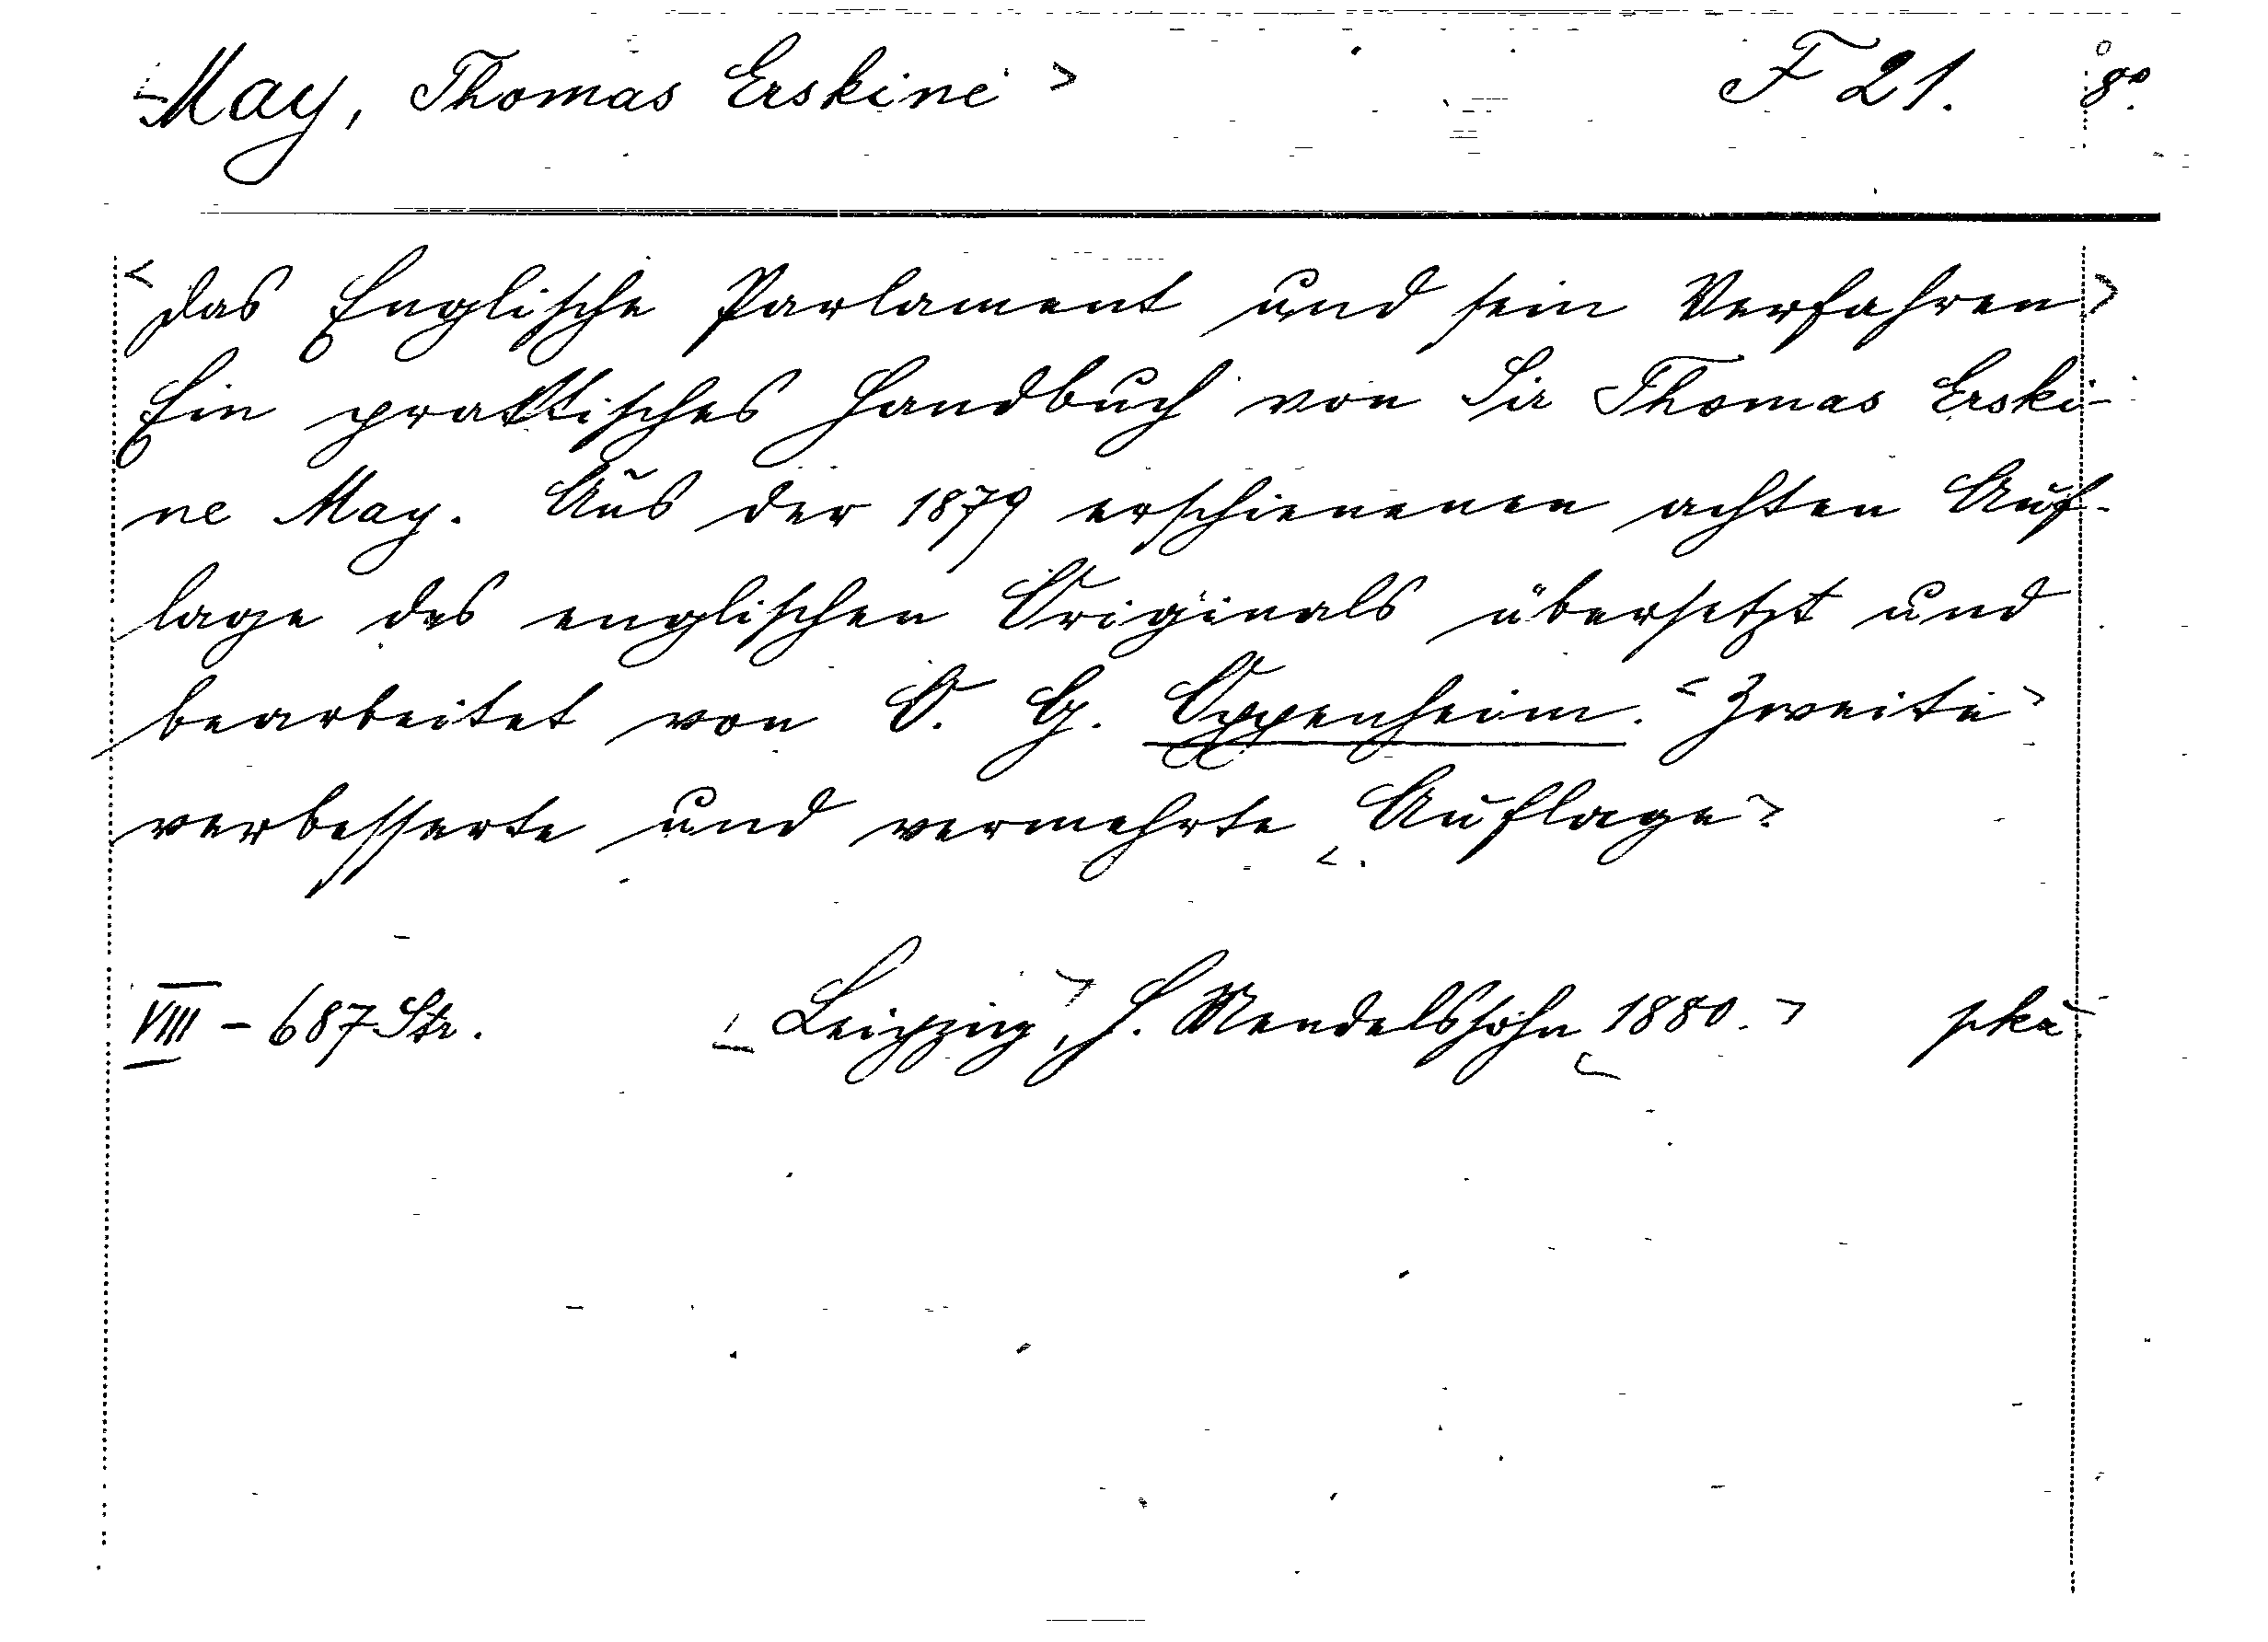 May, Thomas Erskine F 21. 8°.
Das Englische Parlament und sein Verfahren
Ein praktisches Handbuch von Sir Thomas Erski-
ne May. Aus der 1879 erschienenen achten Auf-
lage des englischen Originals übersetzt und
bearbeitet von O. G. Oppenheim. Zweite
verbesserte und vermehrte Auflage
VIII - 687 Str. Leipzig, H. Mendelssohn 1880.